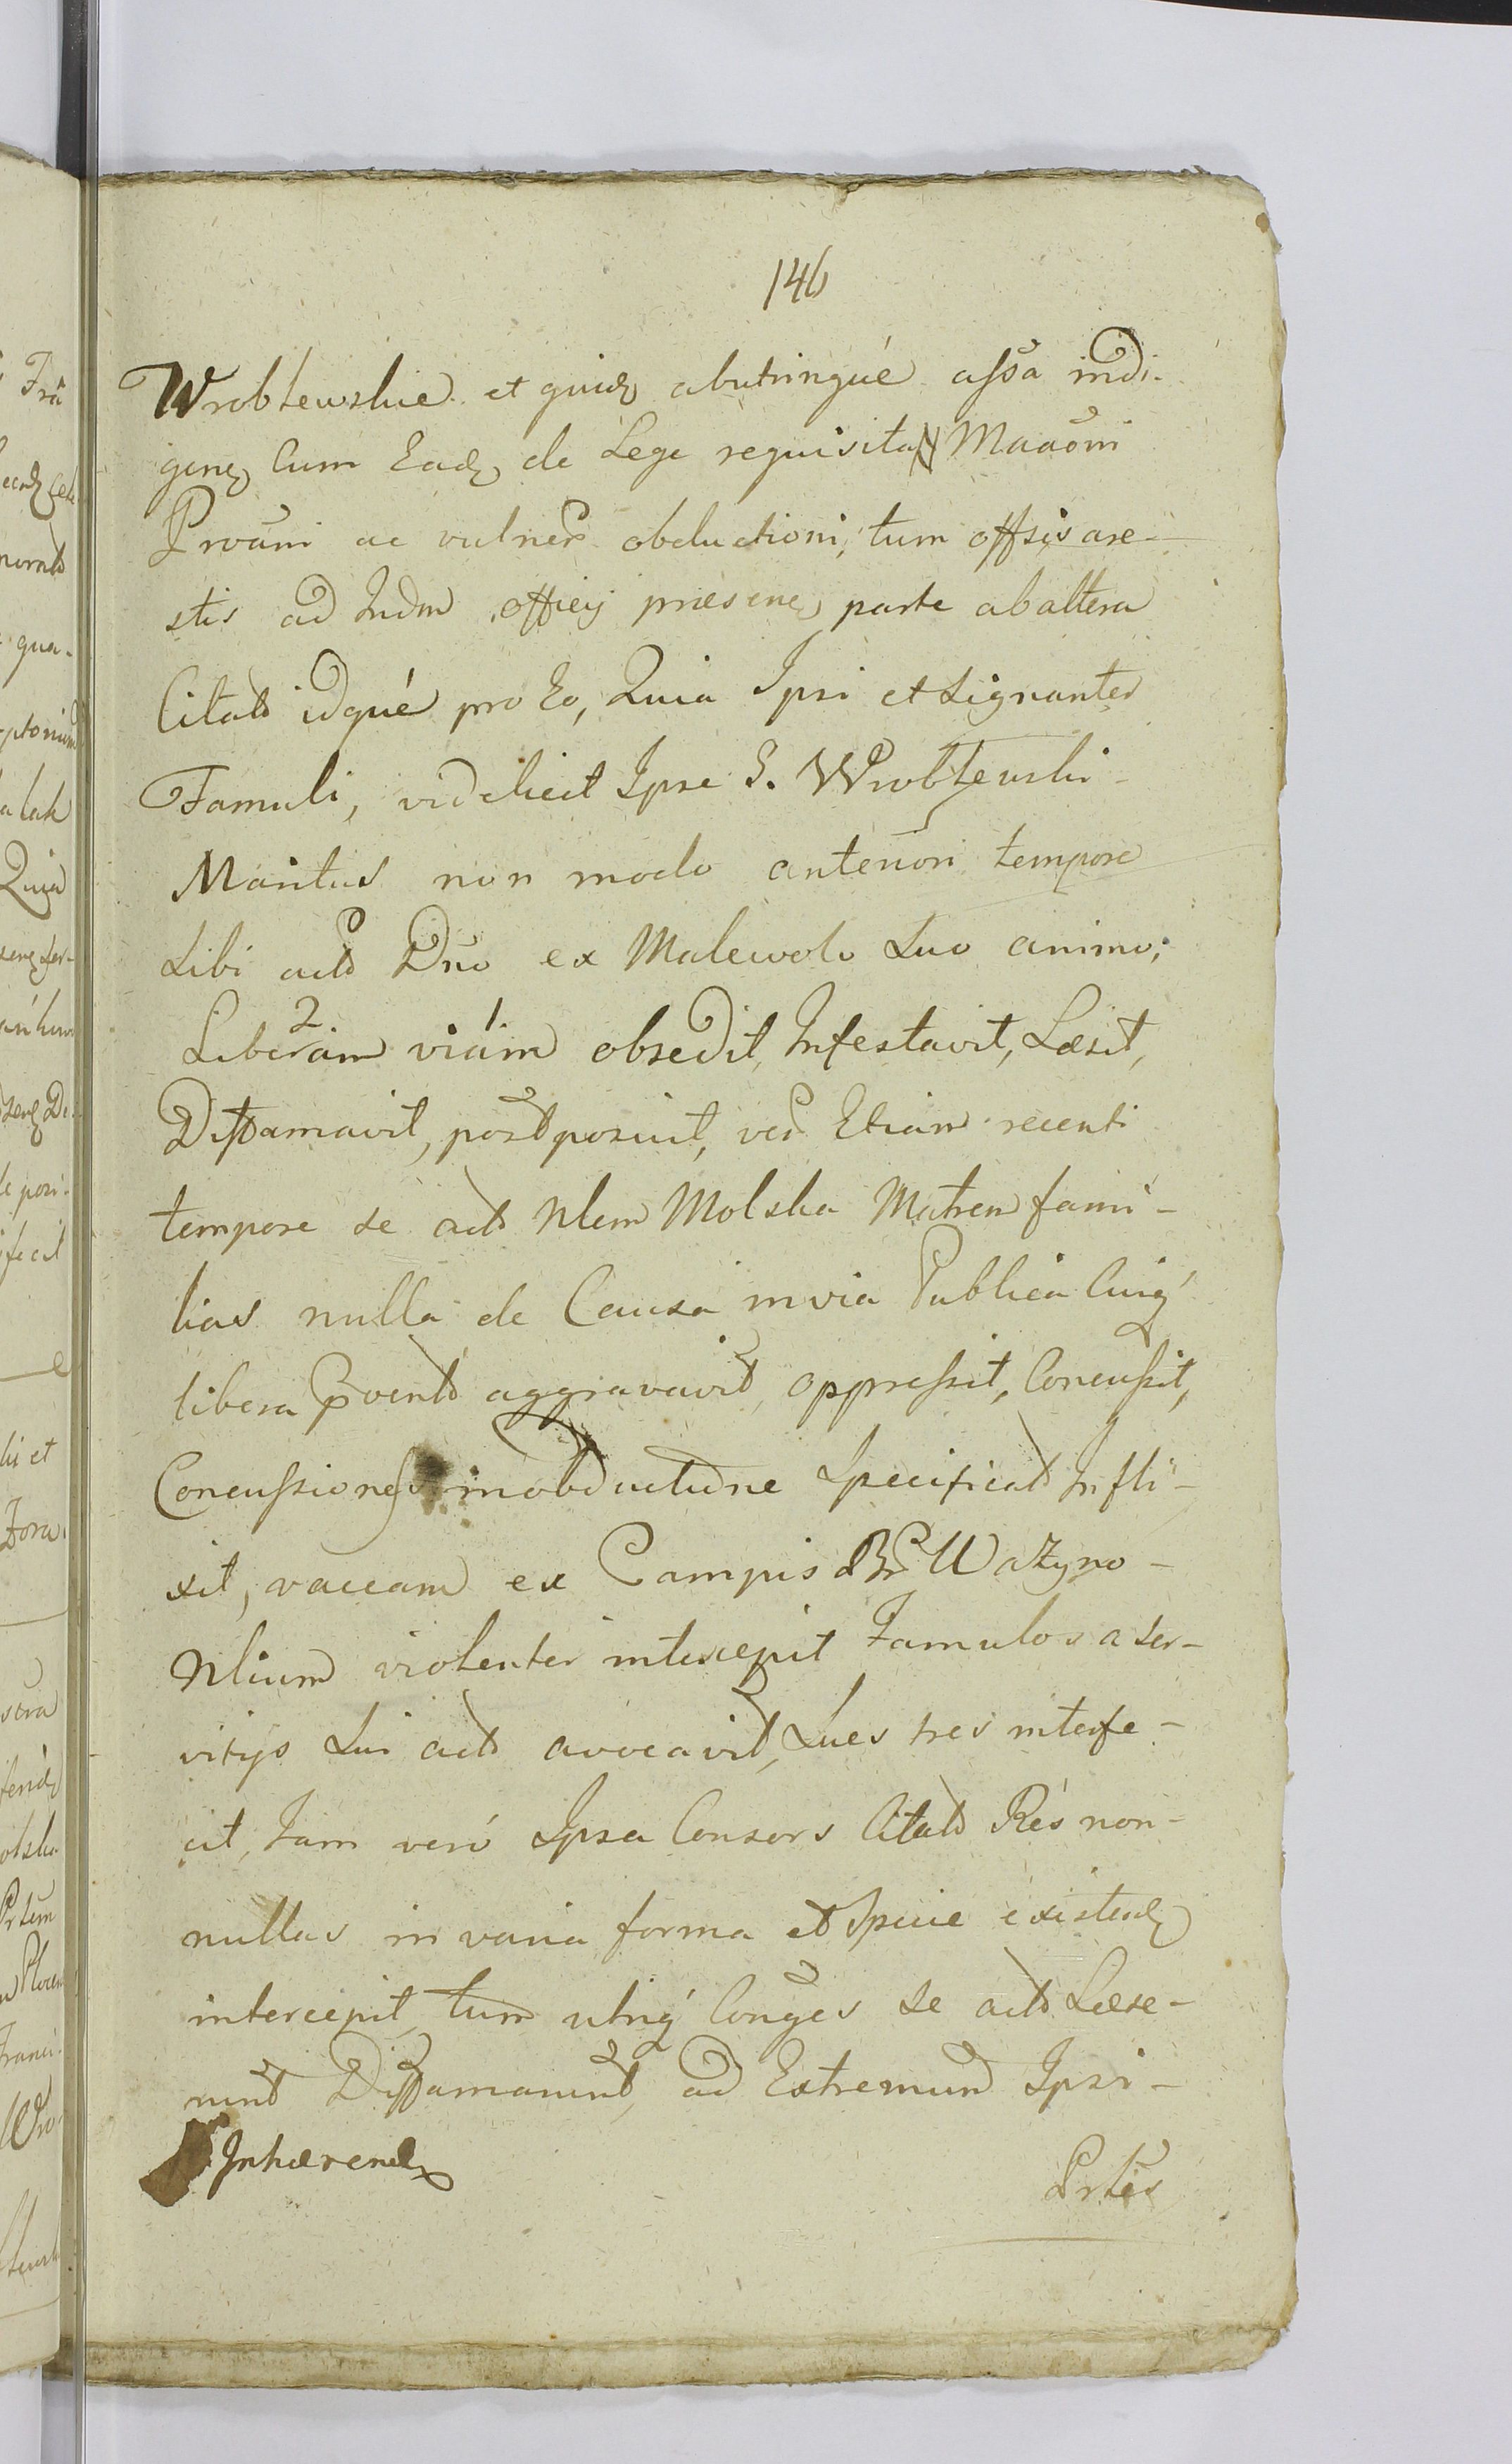 146
Wrobłewskie et quidꝫ abutrinque assa indi-
genꝫ Cum Eadꝫ de Lege requisita Maaoni
Prvāni ac vulner obductioni, tum offsis are-
stis ad Indm officij præsenꝫ parte ab altera
Citato idque pro Eo, Quia Ipsi et Signanter
Famuli, videlicet Ipse G. Wrobłewski
Maritus non modo anteriori tempore
Sibi acto Dno ex Malewolo Suo animo;
Liberam viam obsedit, Infestavit, Læsit,
Diffamavit, postposuit, ver Etiam recenti
tempore se acto Nlem Molska Matrem fami-
lias nulla de Causa in via Publica Cuiqꝫ
libera pvento aggravavit, oppressit, Concussit,
Concussiones in obductione Specificato Infli-
xit, vaccam ex Campis Br Ważyno-
Nlium violenter intercepit Famulos a ser-
vitijs Sui acto avocavit, Sues tres interfe-
cit, Jam vero Ipsa Consors Citato Res non-
nullas in varia forma et Specie existenꝫ
intercepit, tum utriqꝫ Conges se acto Læse-
runt Diffamarunt, ad Extremum Ipsi-
Inhærendꝫ
Prtes